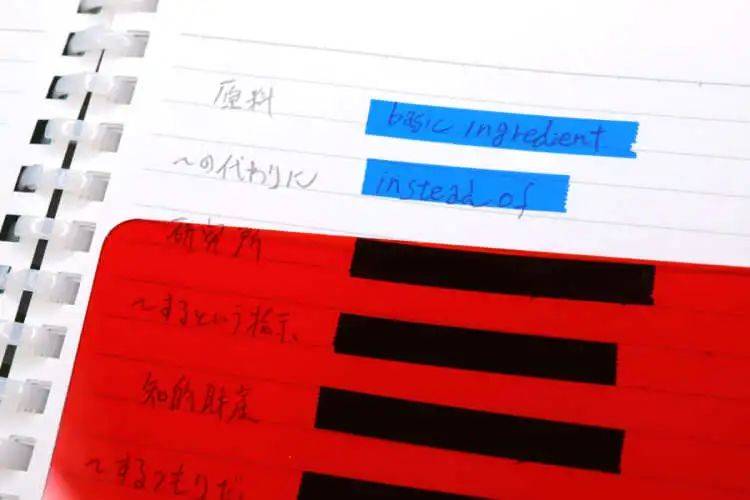 原料 basic ingredient
〜の代わりに instead of
研究所
〜するという指示、
知的財産
〜するつもりだ、